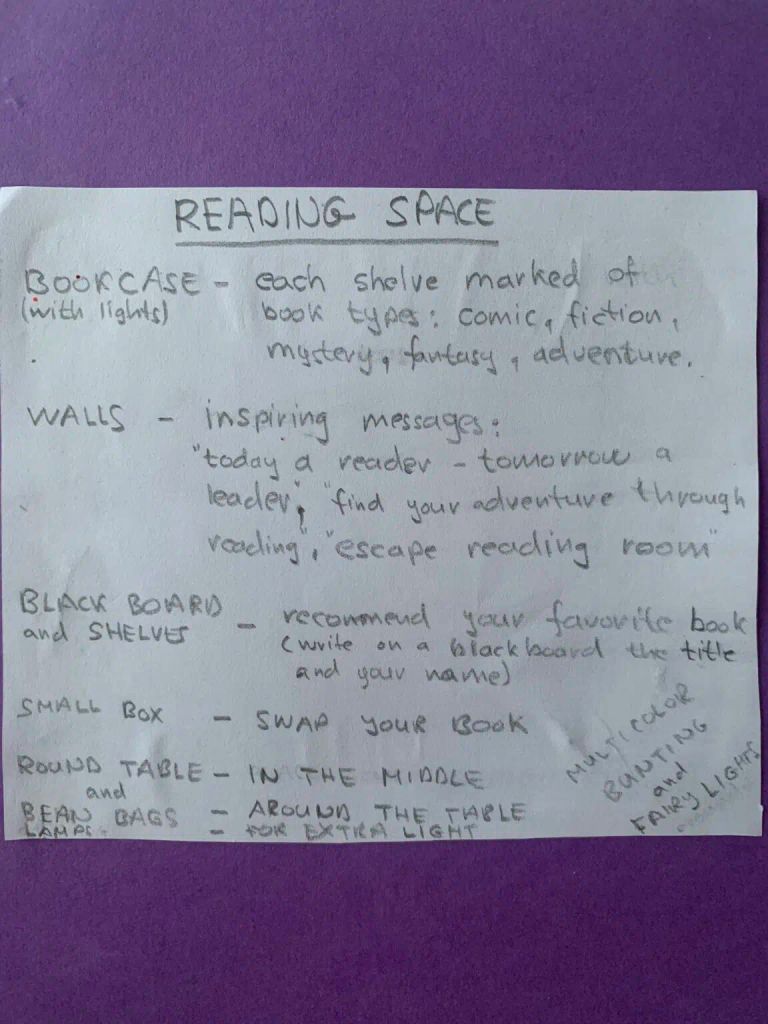 READING SPACE
BOOKCASE - each shelve marked of
(with lights) book types: comic, fiction,
mystery, fantasy, adventure.
WALLS - inspiring messages:
"today a reader - tomorrow a
leader", "find your adventure through
reading", "escape reading room"
BLACK BOARD
and SHELVES - recommend your favorite book
(write on a blackboard the title
and your name)
SMALL BOX - SWAP YOUR BOOK
ROUND TABLE - IN THE MIDDLE
and
BEAN BAGS - AROUND THE TABLE
LAMPS - FOR EXTRA LIGHT
MULTICOLOR
BUNTING
and
FAIRY LIGHTS